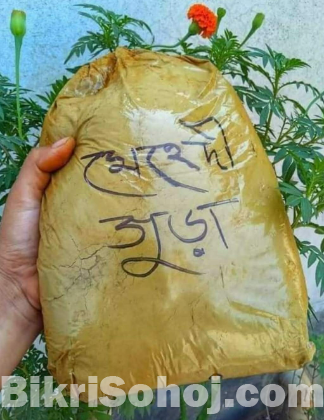 মেহেদী
গুড়া
BikriSohoj.com